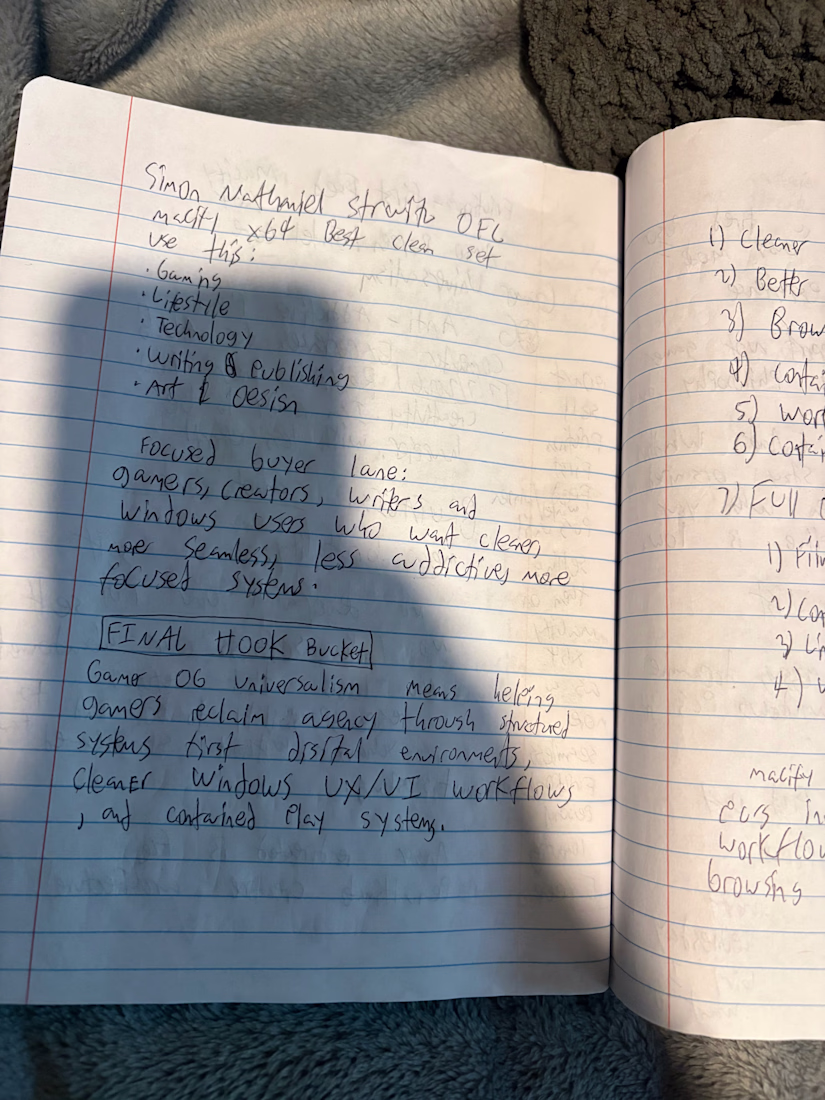 Simon Nathaniel Strwitz OFC
macify x64 Best clean set
use this:
· Gaming
· Lifestile
· Technology
· Writing & Publishing
· Art & Design
Focused buyer lane:
gamers, creators, writers and
windows users who want cleaner,
more seamless, less addictive, more
focused systems.
FINAL HOOK Bucket
Gamer OG Universalism means helping
gamers reclaim agency through structured
systems first digital environments,
CLeaNER Windows UX/UI workflows
, and contained Play systems.
1) Cleaner
2) Better
3) Brow
4) Contai
5) Wor
6) Contai
7) FULL
1)
2) Con
3) Li
4)
macify
in
workflow
browsing